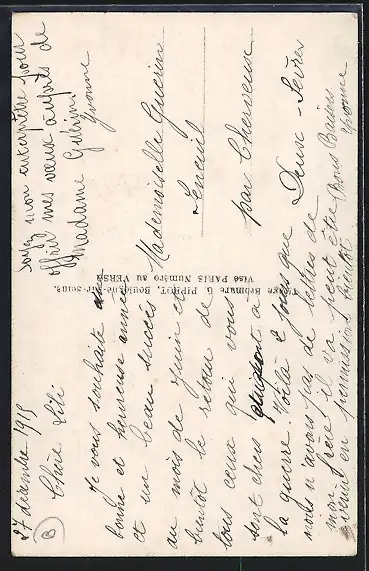 27 décembre 1915
Chère Lili
Je vous souhaite
bonne et heureuse année
et un beau succès
au mois de Juin et
bientôt le retour de
tous ceux qui vous
sont chers à
la guerre. Voilà jours que
nous n'avons pas de lettres de
mon frère il va peut être
venir en permission bientôt
Bons Baisers
Yvonne
Soyez mon interprète pour
offrir mes vœux auprès de
Madame
Yvonne
Mademoiselle Guérin
par Cherveux
Deux-Sèvres
Tirage Bromure G. PIPROT, Boulogne-sur-Seine.
Visé PARIS Numéro au VERSO
B